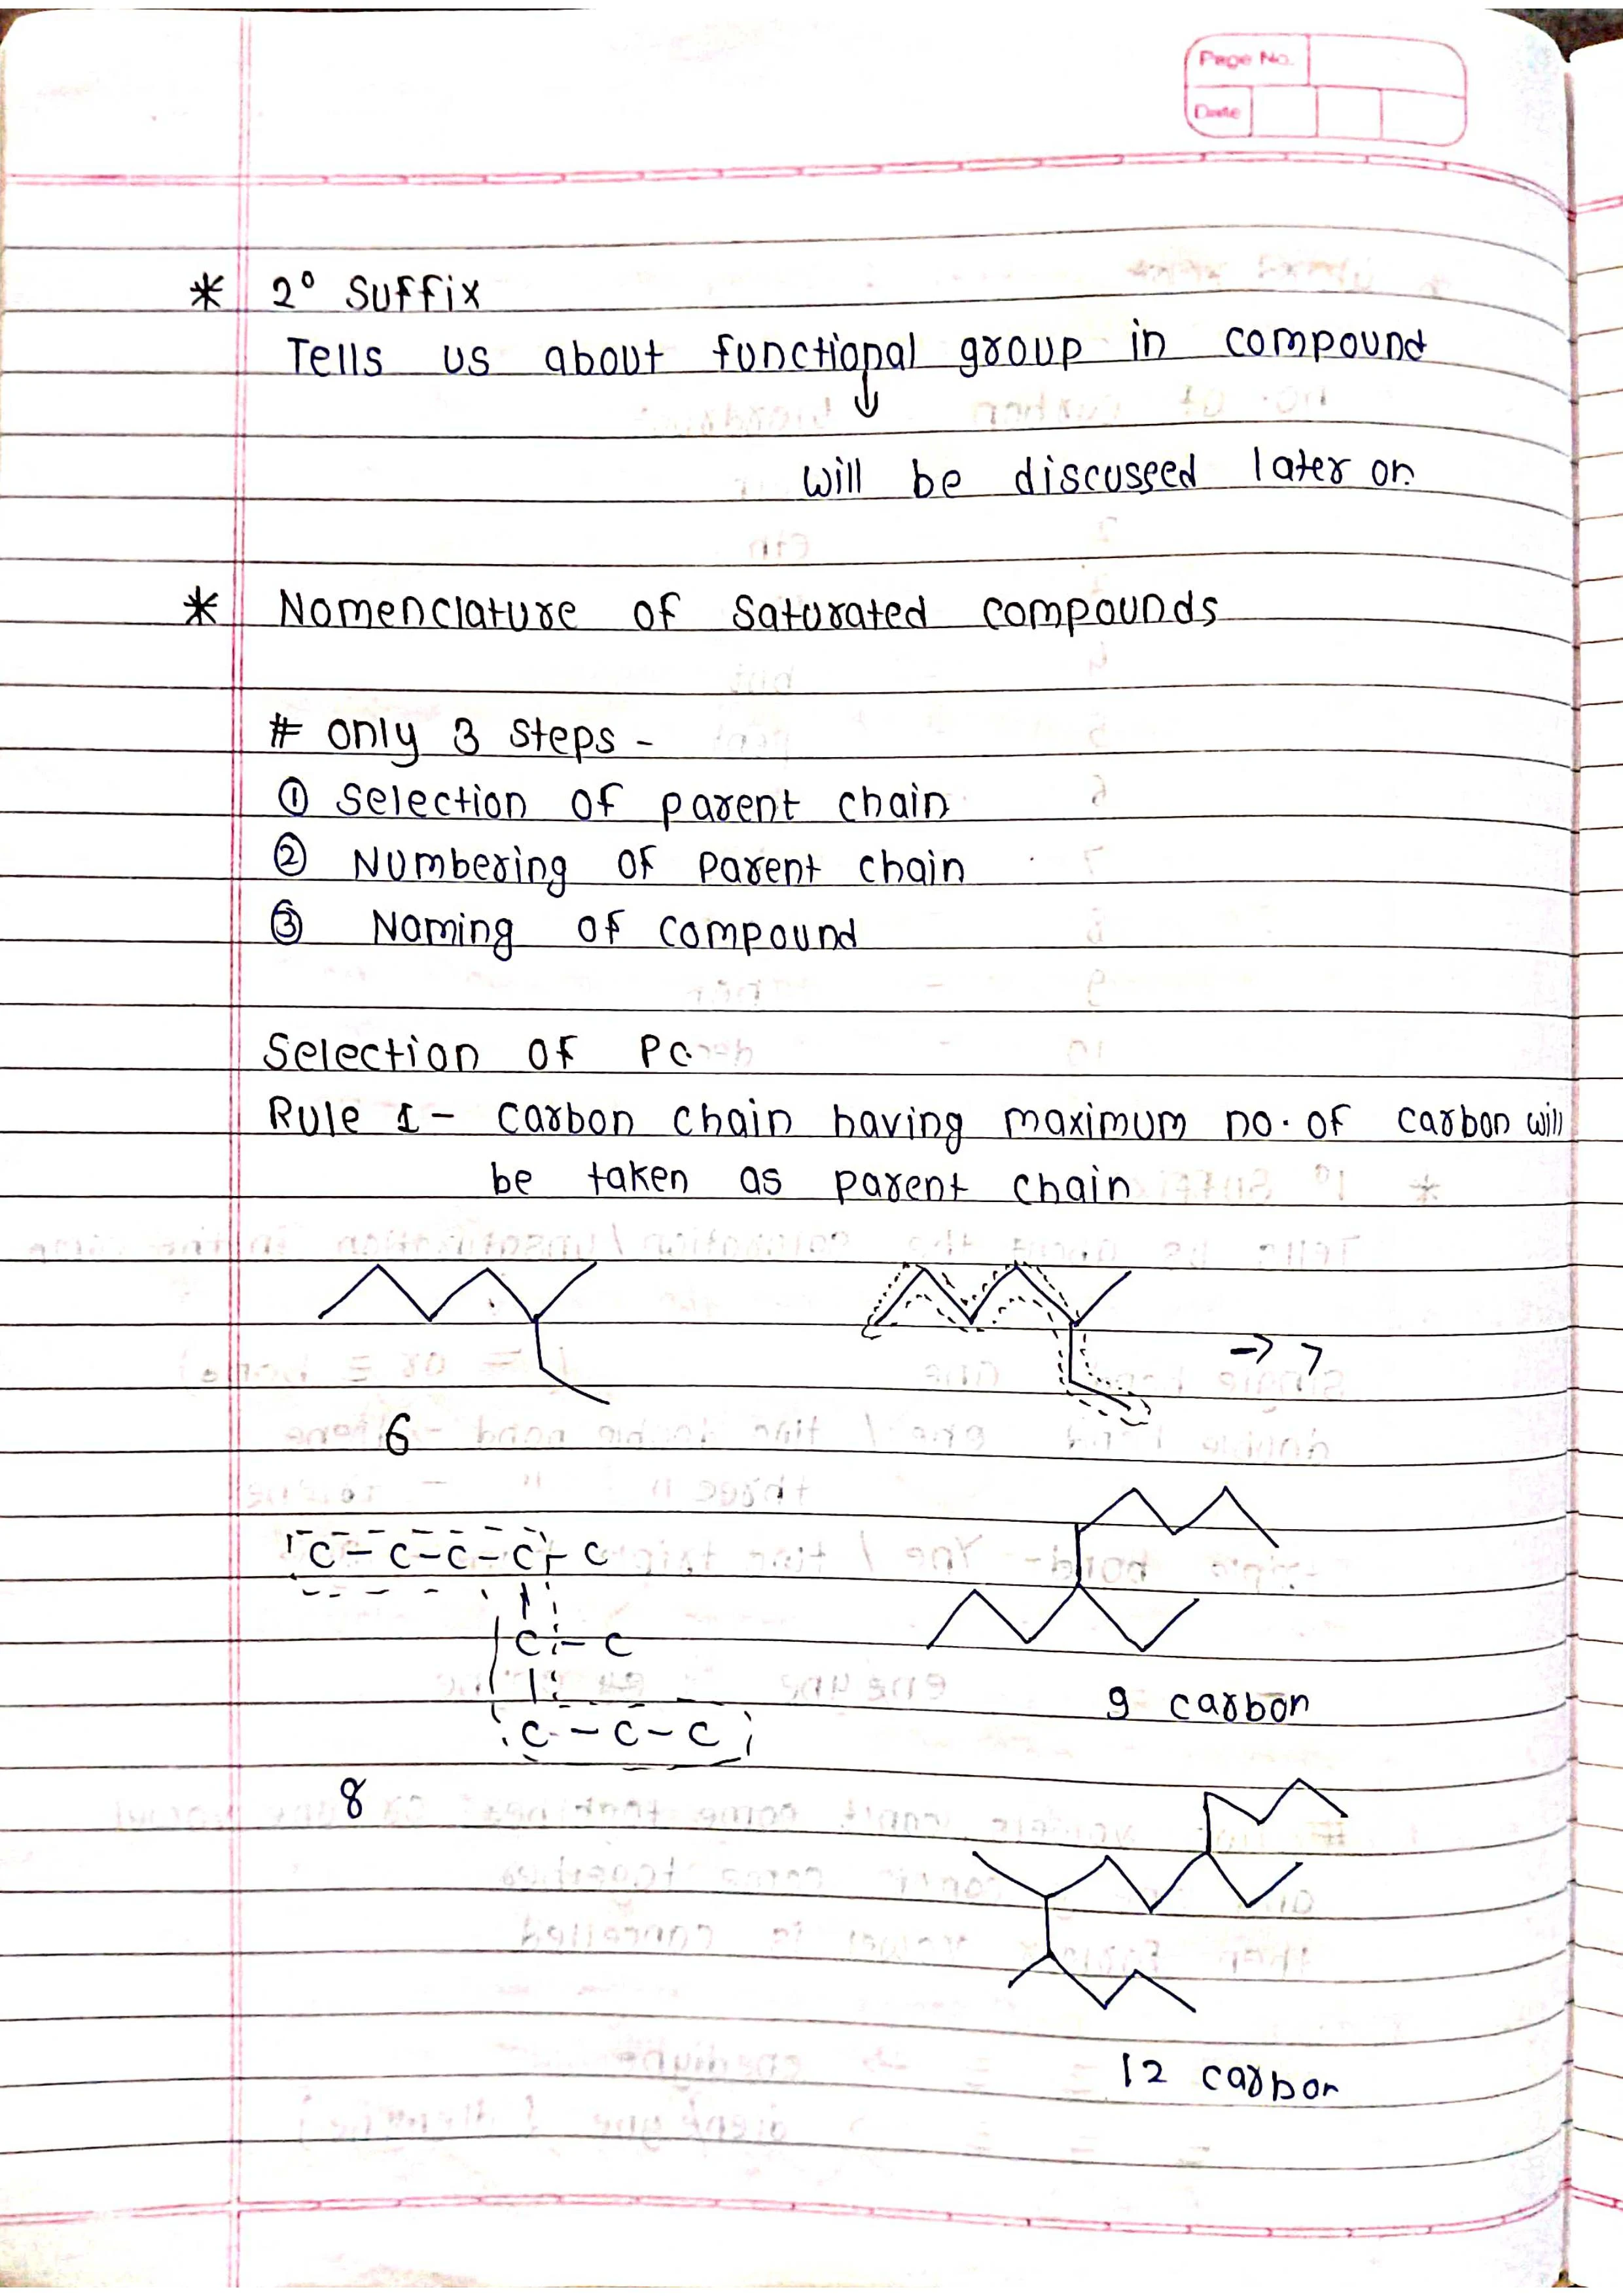 Page No.
Date
* 2° Suffix
Tells us about functional group in compound
↓
will be discussed later on
* Nomenclature of Saturated compounds
# only 3 steps -
① Selection of parent chain
② Numbering of parent chain
③ Naming of compound
Selection of PC
Rule 1 - carbon chain having maximum no. of carbon will
be taken as parent chain
→ 7
6
C - C - C - C - C
C - C
C - C - C
9 carbon
8
12 carbon